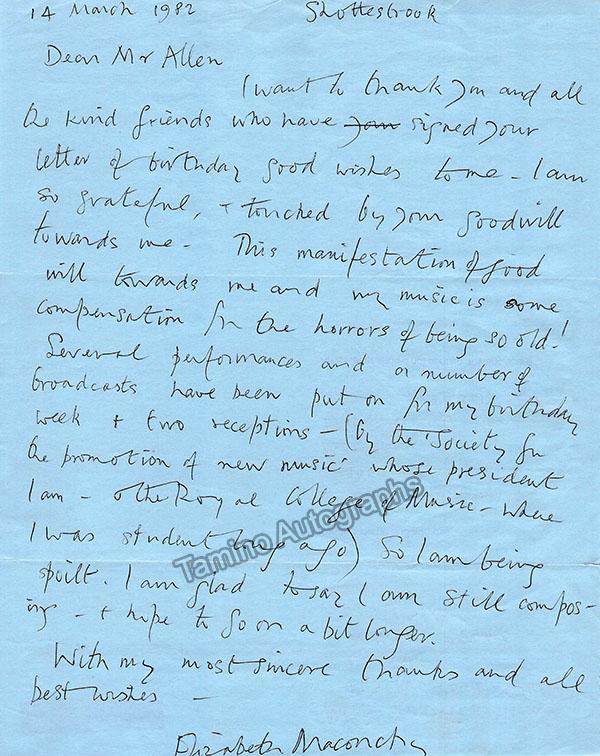 14 March 1982 Shottesbrook
Dear Mr Allen
I want to thank you and all
the kind friends who have your signed your
letter of birthday good wishes to me - I am
so grateful, + touched by your goodwill
towards me - This manifestation of good
will towards me and my music is some
compensation for the horrors of being so old!
Several performances and a number of
broadcasts have been put on for my birthday
week + two receptions - (by the 'Society for
the promotion of new music' whose president
I am - + the Royal College of Music - where
I was student long ago) So I am being
spoilt. I am glad to say I am still compos-
ing - + hope to go on a bit longer.
With my most sincere thanks and all
best wishes -
Elizabeth Maconchy
Tamino Autographs